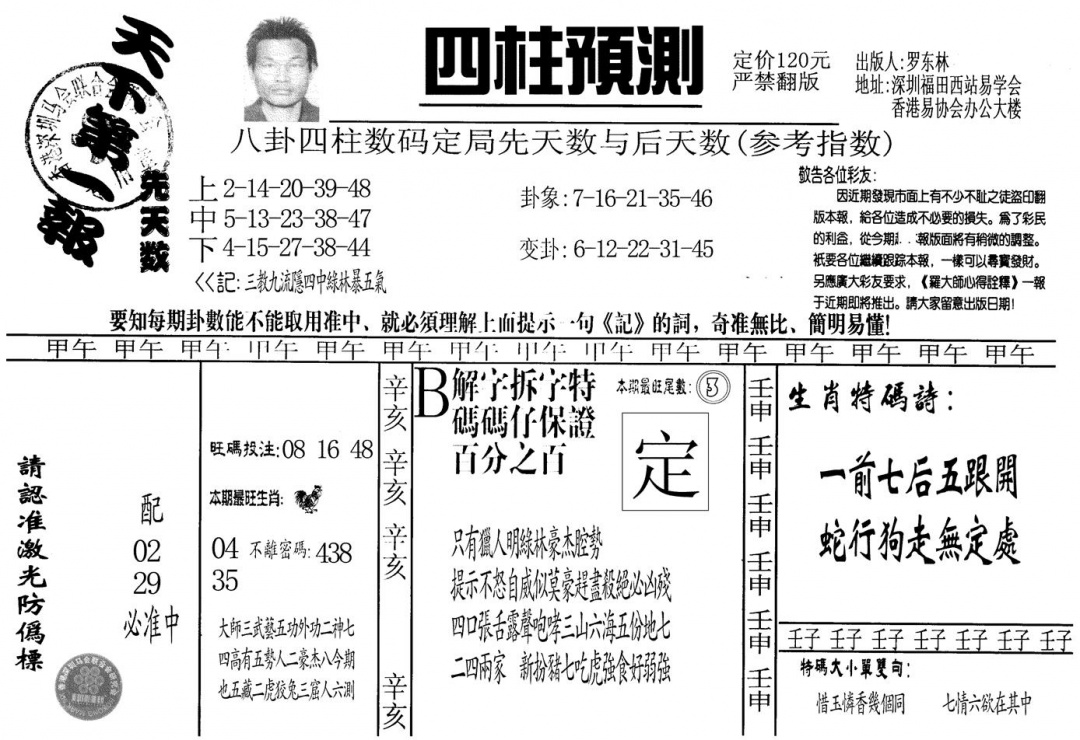 天下第一報
四柱預測
定价120元
严禁翻版
出版人:罗东林
地址:深圳福田西站易学会
香港易协会办公大楼
八卦四柱数码定局先天数与后天数(参考指数)
先天数
上2-14-20-39-48
中5-13-23-38-47
下4-15-27-38-44
卦象:7-16-21-35-46
变卦:6-12-22-31-45
<<記:三教九流隱四中綠林暴五氣
敬告各位彩友:
因近期發現市面上有不少不耻之徒盜印翻
版本報,給各位造成不必要的損失。爲了彩民
的利益,從今期
報版面將有稍微的調整。
衹要各位繼續跟踪本報,一樣可以尋寶發財。
另應廣大彩友要求,《羅大師心得詮釋》一報
于近期即將推出。請大家留意出版日期!
要知每期卦數能不能取用准中、就必須理解上面提示一句《記》的詞,奇准無比、簡明易懂!
甲午 甲午 甲午 甲午 甲午 甲午 甲午 甲午 甲午 甲午 甲午 甲午 甲午 甲午 甲午
請認准激光防僞標
配
02
29
必准中
旺碼投注:08 16 48
本期最旺生肖:
04 不離密碼:438
35
大師三武藝五功外功二神七
四高有五勢人二豪杰八今期
也五藏二虎狡兔三窟人六測
辛亥
辛亥
辛亥
辛亥
B解字拆字特
碼碼仔保證
百分之百
本期最旺尾數:3
定
只有獵人明綠林豪杰腔勢
提示不怒自威似莫豪趕盡殺絕必凶殘
四口張舌露聲咆哮三山六海五份地七
二四兩家 新扮豬七吃虎強食好弱強
壬申
壬申
壬申
壬申
壬申
壬申
生肖特碼詩:
一前七后五跟開
蛇行狗走無定處
壬子 壬子 壬子 壬子 壬子 壬子 壬子
特碼大小單雙句:
惜玉憐香幾個同 七情六欲在其中